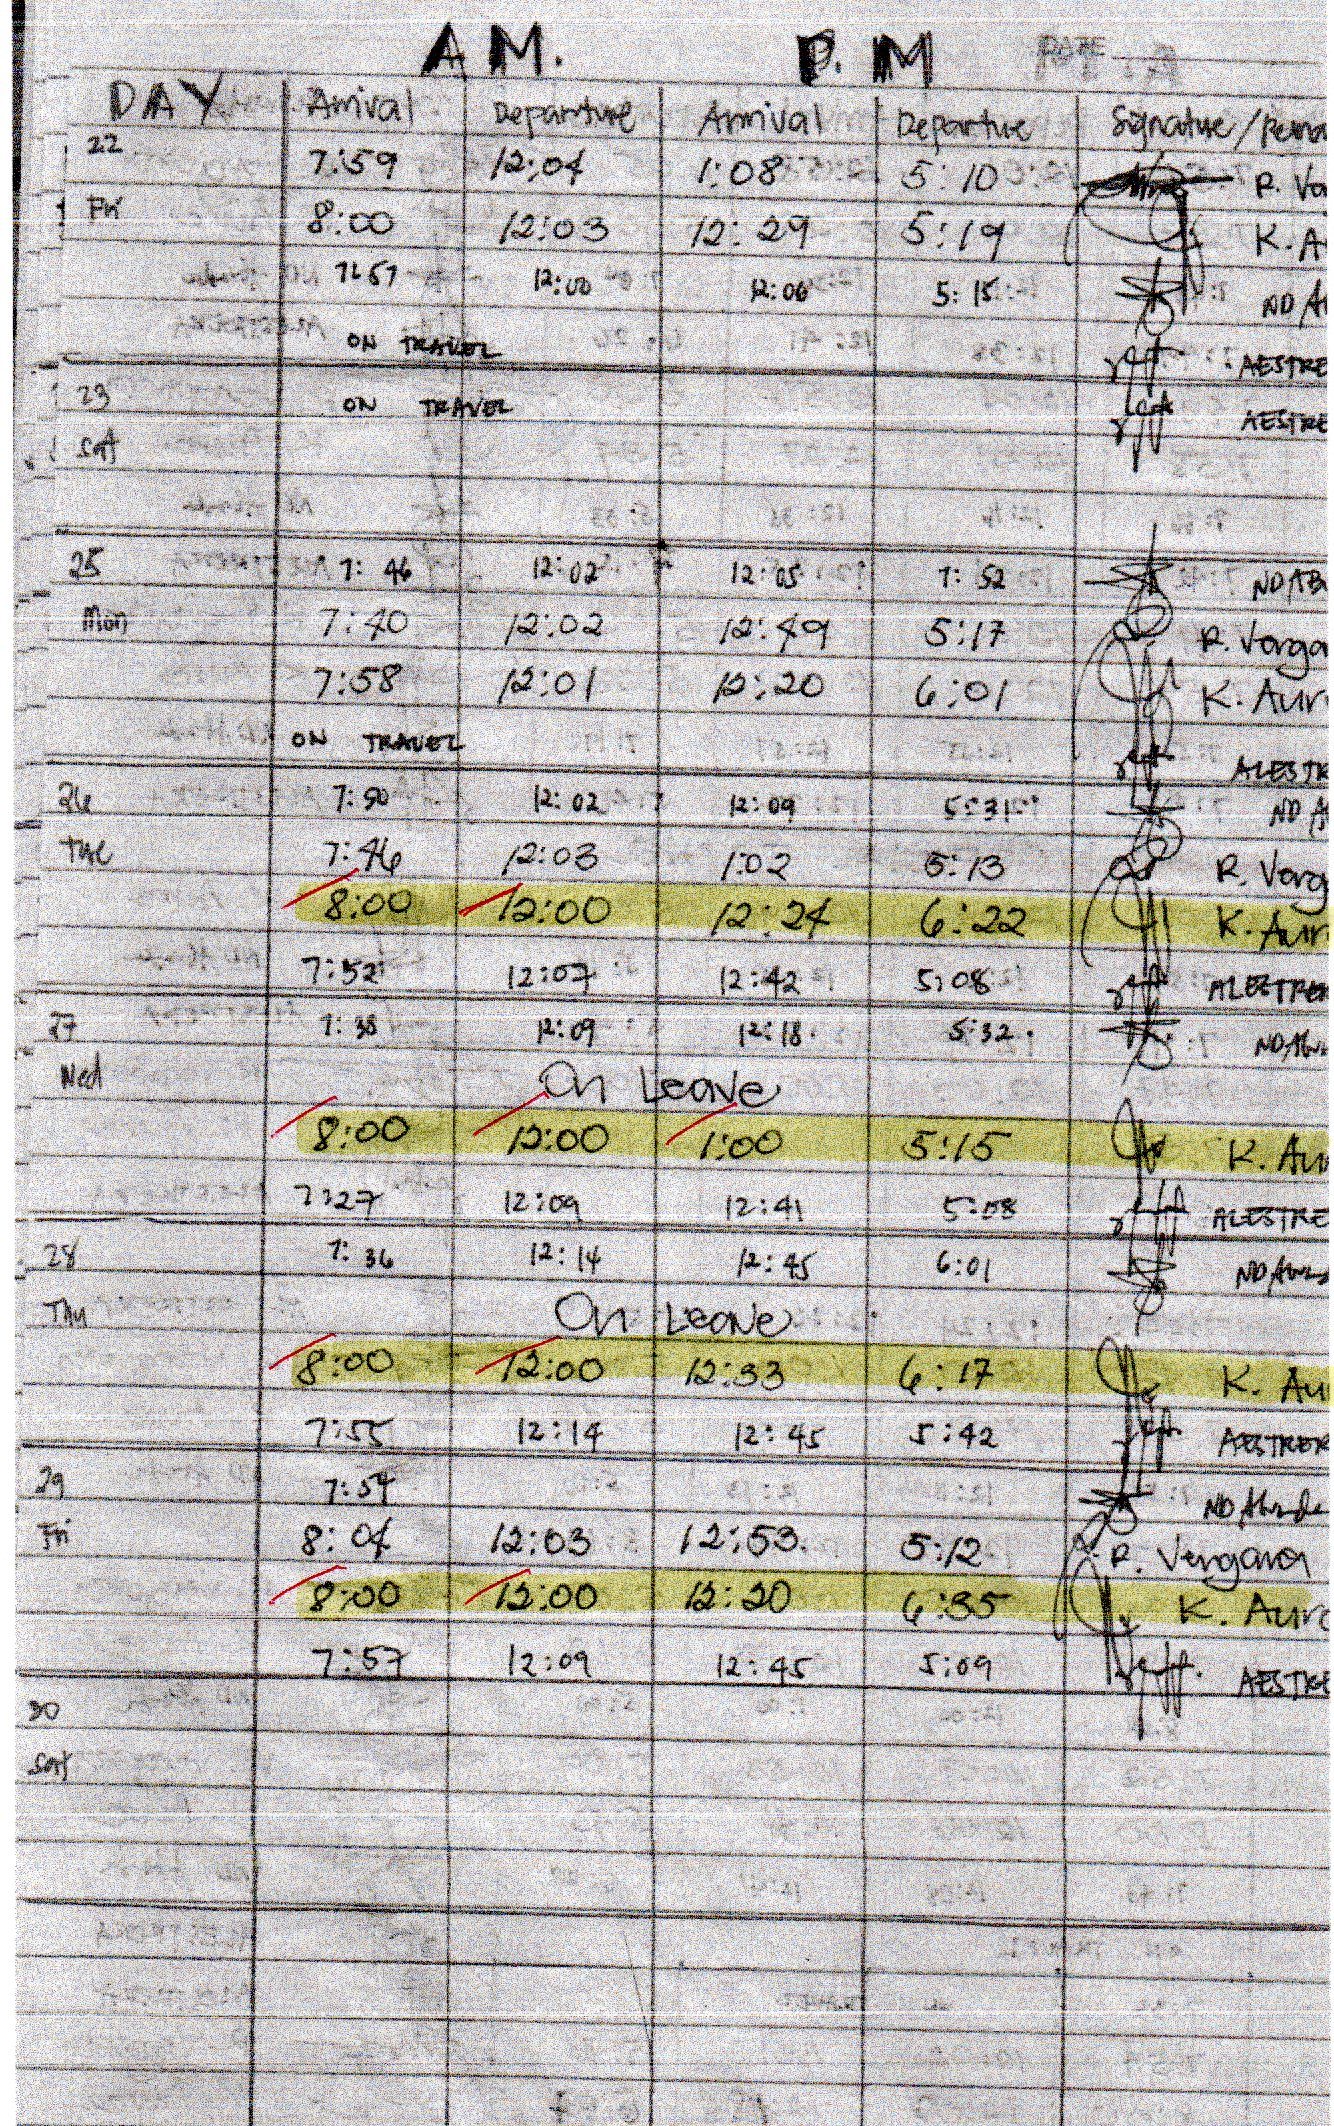 A M. P. M DATE
DAY Arrival Departure Arrival Departure Signature/
22 7:59 12:04 1:08 5:10 R. Va
Fri 8:00 12:03 12:29 5:19 K. A
7:57 12:00 12:06 5:15 ND
ON TRAVEL AESTRE
23 ON TRAVEL AESTRE
Sat
25 7:46 12:02 12:05 7:52 ND AB
Mon 7:40 12:02 12:49 5:17 R. Verga
7:58 12:01 12:20 6:01 K. Aur
ON TRAVEL ALESTR
26 7:50 12:02 12:09 5:31 ND A
Tue 7:46 12:03 1:02 5:13 R. Verg
8:00 12:00 12:24 6:22 K. Aur
7:52 12:07 12:42 5:08 ALESTRE
27 7:38 12:09 12:18 5:32 ND
Wed On Leave
8:00 12:00 1:00 5:15 K. Au
7:27 12:09 12:41 5:08 ALESTRE
28 7:36 12:14 12:45 6:01 ND
Thu On Leave
8:00 12:00 12:33 6:17 K. Au
7:55 12:14 12:45 5:42 AESTRE
29 7:54 ND
Fri 8:04 12:03 12:53 5:12 R. Vergara
8:00 12:00 12:20 6:35 K. Aur
7:57 12:09 12:45 5:09 AESTRE
30
Sat